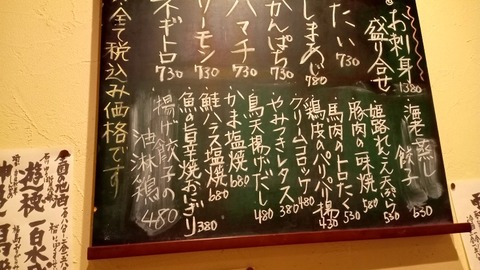 お刺身
盛り合せ 1380
たい 730
しまあじ 780
かんぱち 730
ハマチ 730
サーモン 730
ネギトロ 730
全て税込み価格です
海老蒸し餃子 630
姫路れんこん天ぷら 580
豚肉の一味焼 580
馬肉のトロたく 530
鶏皮のパリパリ揚 430
クリームコロッケ 480
やみつきレタス 380
鳥天揚げだし 480
かま塩焼 680
鮭ハラス塩焼 680
魚の旨辛焼おにぎり 380
揚げ餃子の油淋鶏 480
今月の地酒